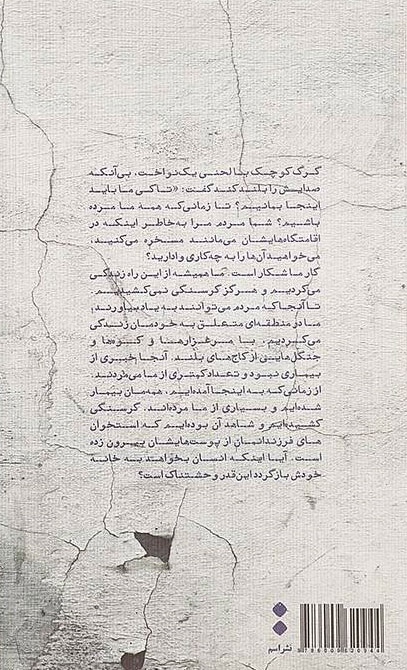 گرگ کوچک با لحنی یک‌نواخت، بی‌آنکه
صدایش را بلند کند گفت: «تا کی ما باید
اینجا بمانیم؟ تا زمانی‌که همه ما مرده
باشیم؟ شما مردم مرا به‌خاطر اینکه در
اقامتگاه‌هایشان می‌مانند مسخره می‌کنید،
می‌خواهید آن‌ها را به چه‌کاری وادارید؟
کار ما شکار است. ما همیشه از این راه زندگی
می‌کردیم و هرگز گرسنگی نمی‌کشیدیم.
تا آنجا که مردم می‌توانند به یاد بیاورند،
ما در منطقه‌ای متعلق به خودمان زندگی
می‌کردیم. با مرغزارها و کوه‌ها و
جنگل‌هایی از کاج‌های بلند. آنجا خبری از
بیماری نبود و تعداد کمتری از ما می‌مردند.
از زمانی‌که به اینجا آمده‌ایم، همه‌مان بیمار
شده‌ایم و بسیاری از ما مرده‌اند. گرسنگی
کشیده‌ایم و شاهد آن بوده‌ایم که استخوان
های فرزندانمان از پوست‌هایشان بیرون زده
است. آیا اینکه انسان بخواهد به خانه
خودش بازگردد این‌قدر وحشتناک است؟
نشر اسم